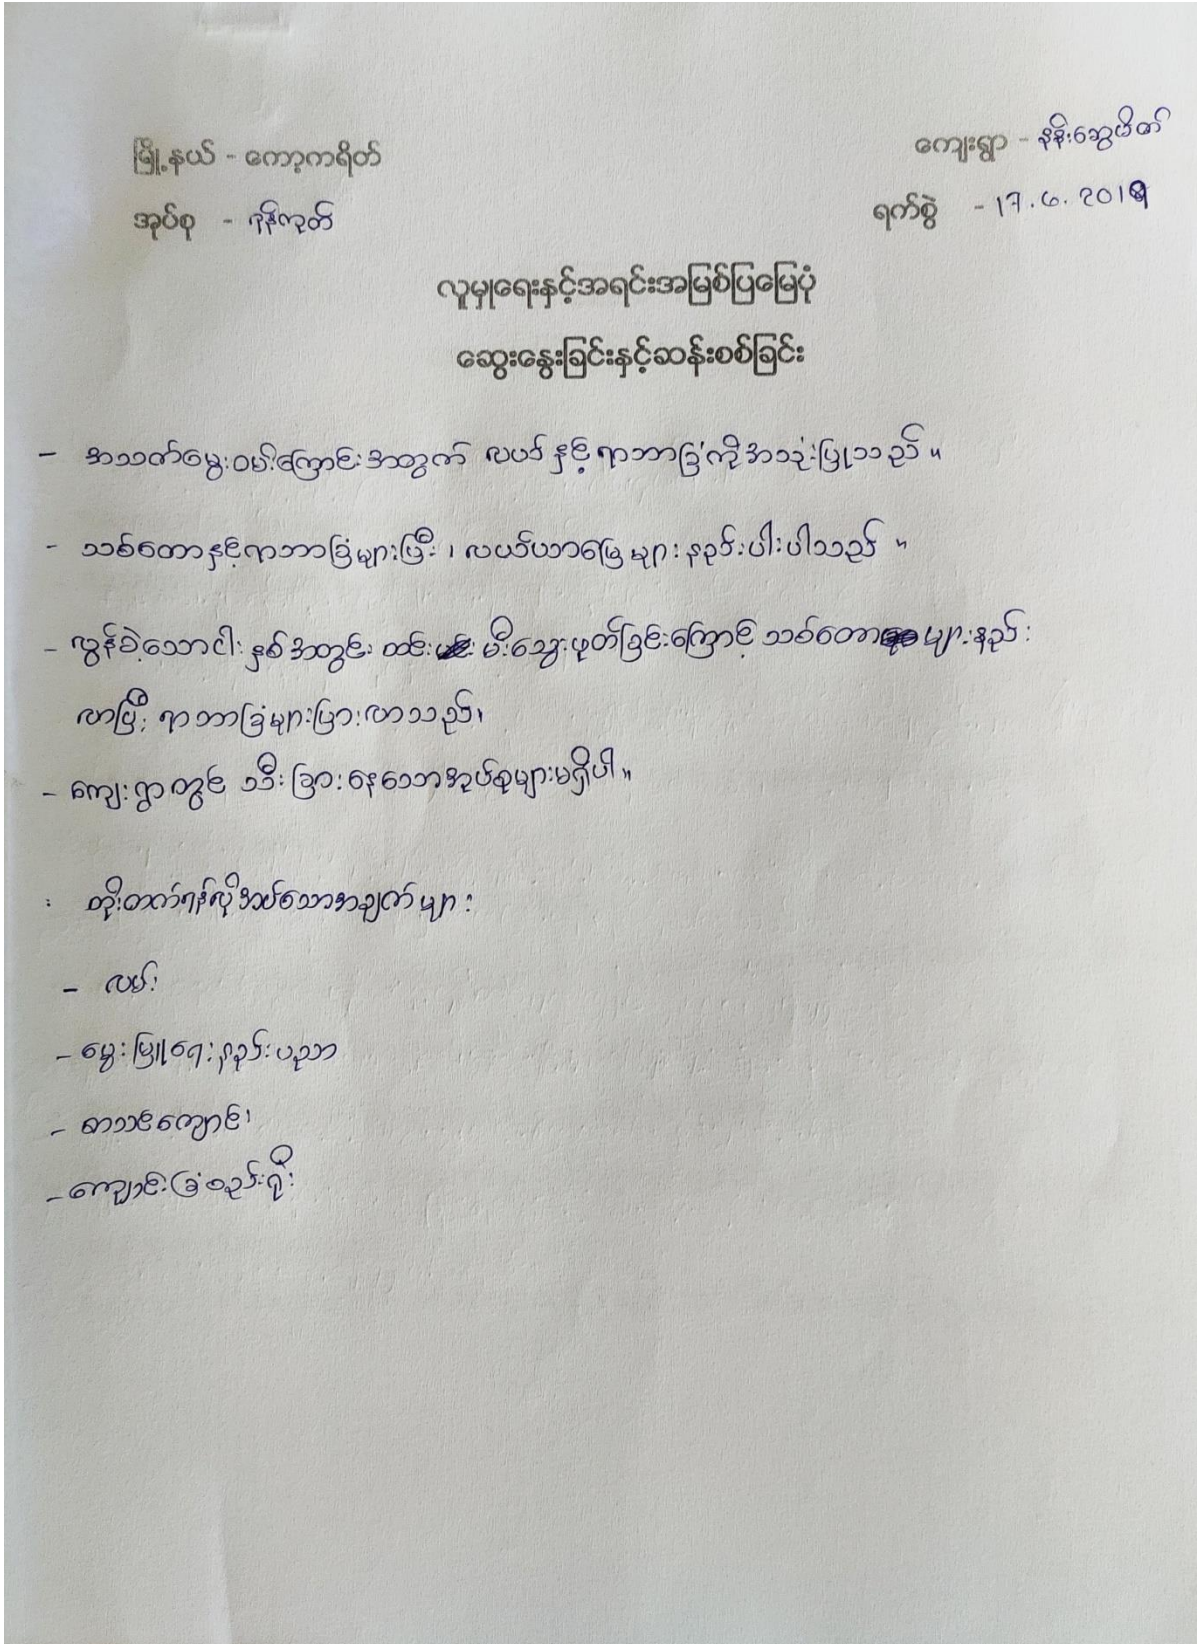 မြို့နယ် - ကော့ကရိတ်
ကျေးရွာ - နန်းဆွေဖိတ်
အုပ်စု - ဂုန်ကုတ်
ရက်စွဲ - 17.6.2019
လူမှုရေးနှင့်အရင်းအမြစ်ပြမြေပုံ
ဆွေးနွေးခြင်းနှင့်ဆန်းစစ်ခြင်း
- အသက်မွေးဝမ်းကြောင်းအတွက် လယ် နှင့် ရာဘာခြံကိုအသုံးပြုသည်။
- သစ်တောနှင့်ရာဘာခြံများပြီး၊ လယ်ယာမြေများ နည်းပါးပါသည်။
- လွန်ခဲ့သောငါးနှစ်အတွင်း ထင်း မီးသွေးဖုတ်ခြင်းကြောင့် သစ်တောများနည်း
လာပြီး ရာဘာခြံများပြားလာသည်၊
- ကျေးရွာတွင် သီးခြားနေသောအုပ်စုများမရှိပါ။
: တိုးတက်ရန်လိုအပ်သောအချက်များ :
- လမ်း
- မွေးမြူရေးနည်းပညာ
- စာသင်ကျောင်း
- ကျောင်းခြံစည်းရိုး